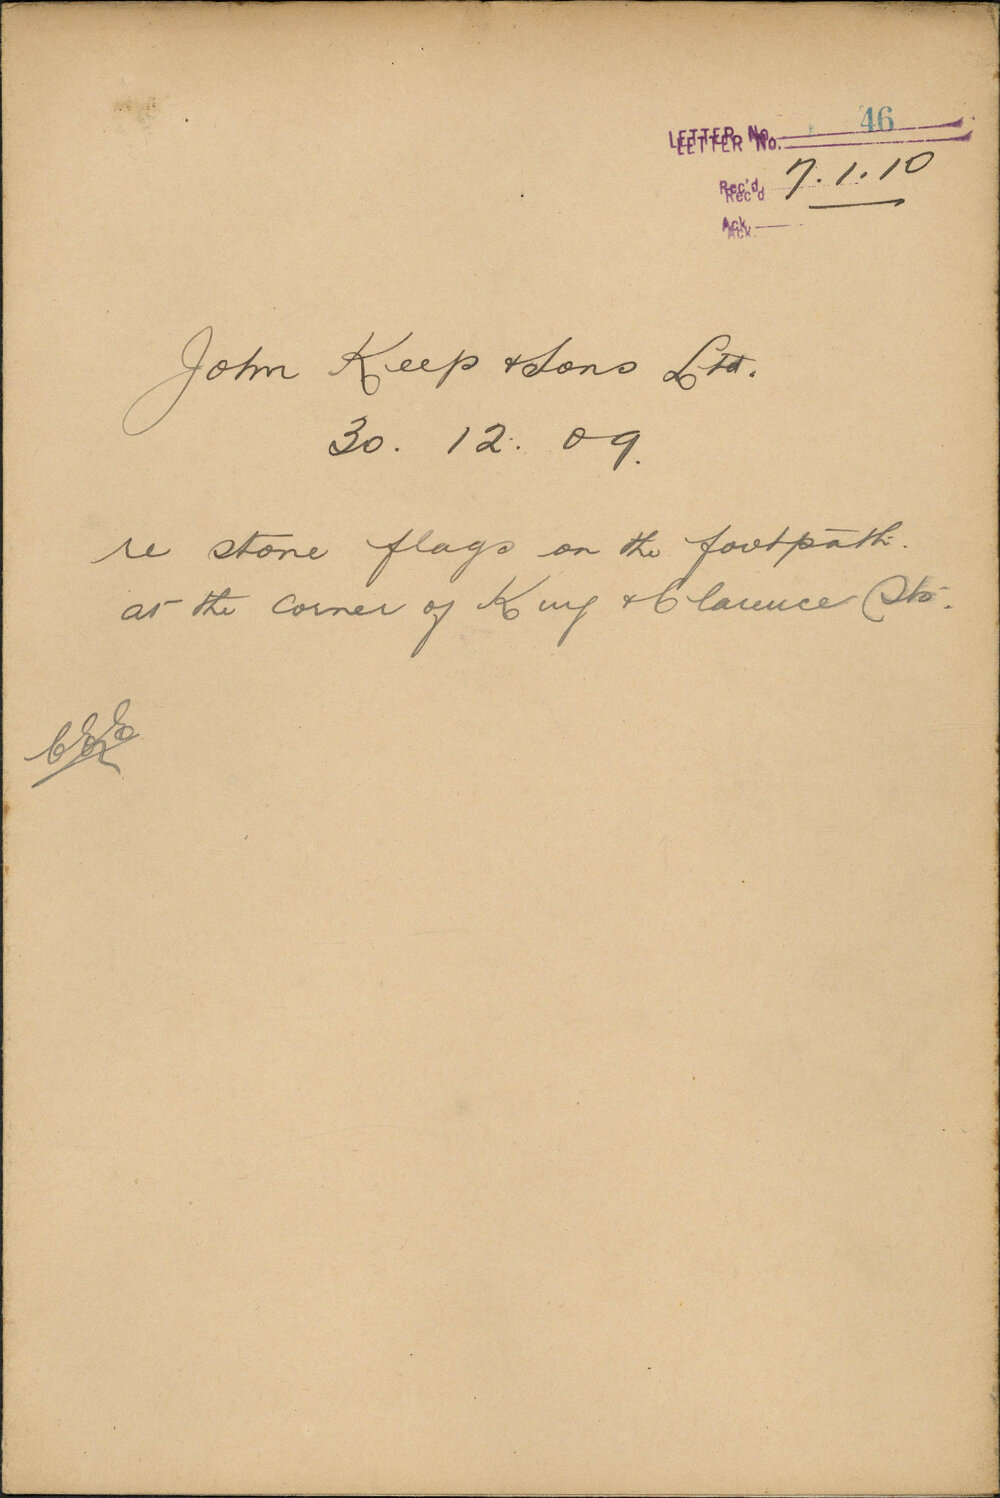 LETTER No. 46
Rec'd 7.1.10
Ack.
John Keep & Sons Ltd.
30. 12. 09.
re stone flags on the footpath.
at the corner of King & Clarence Sts.